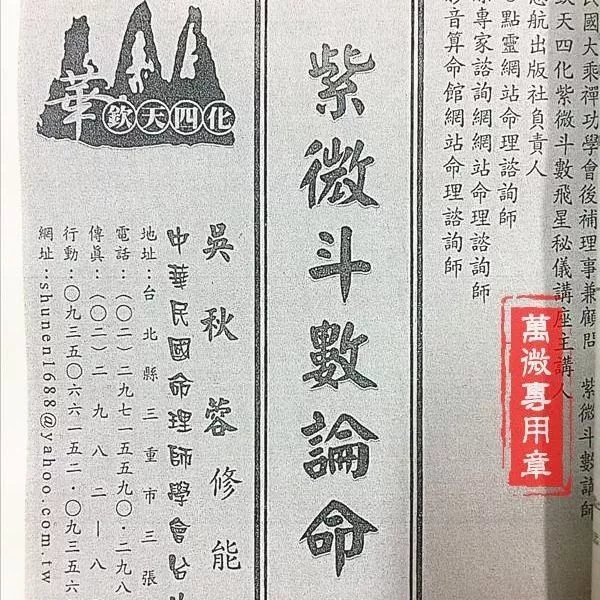 民國大乘禪功學會後補理事兼顧問 紫微斗數講師
欽天四化紫微斗數飛星秘儀講座主講人
航出版社負責人
點靈網站命理諮詢師
專家諮詢網網站命理諮詢師
影音算命館網站命理諮詢師
紫微斗數論命
華
欽天四化
吳秋蓉修能
中華民國命理師學會台
地址：台北縣三重市三張
電話：（〇二）二九七一五五九〇・二九八
傳真：（〇二）二九八二一八
行動：〇九三五〇六六一五二・〇九三五六
網址：shunen1688@yahoo.com.tw
萬微專用章